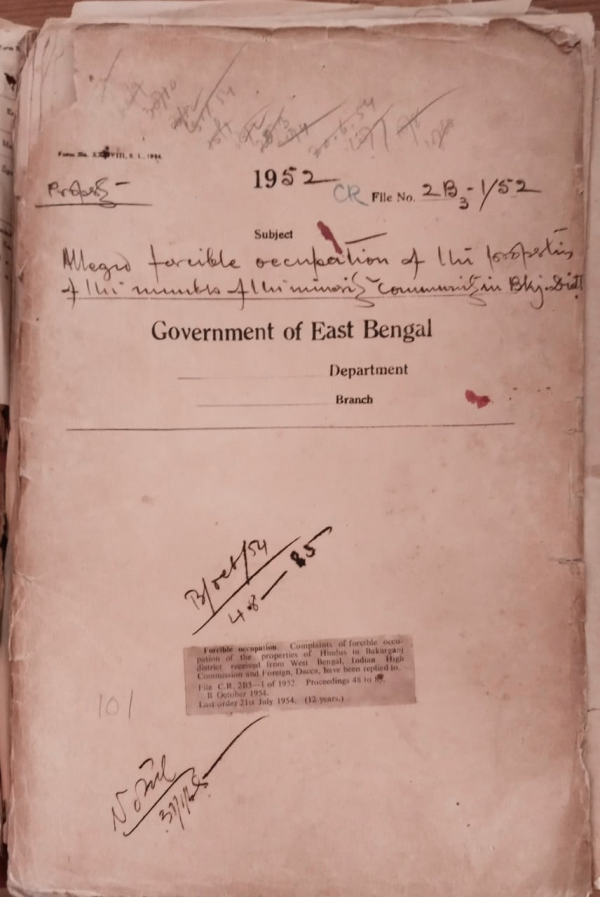 Form No.
Property
1952
CR File No. 2B3-1/52
Subject
Alleged forcible occupation of the properties
of the members of the minority community in Bkj. Dist.
Government of East Bengal
Department
Branch
B/Oct/54
48 — 85
Forcible occupation. Complaints of forcible occu-
pation of the properties of Hindus in Bakarganj
district received from West Bengal, Indian High
Commission and Foreign, Dacca, have been replied to.
File C.R. 2B3—1 of 1952. Proceedings 48 to
B October 1954.
Last order 21st July 1954. (12 years.)
101